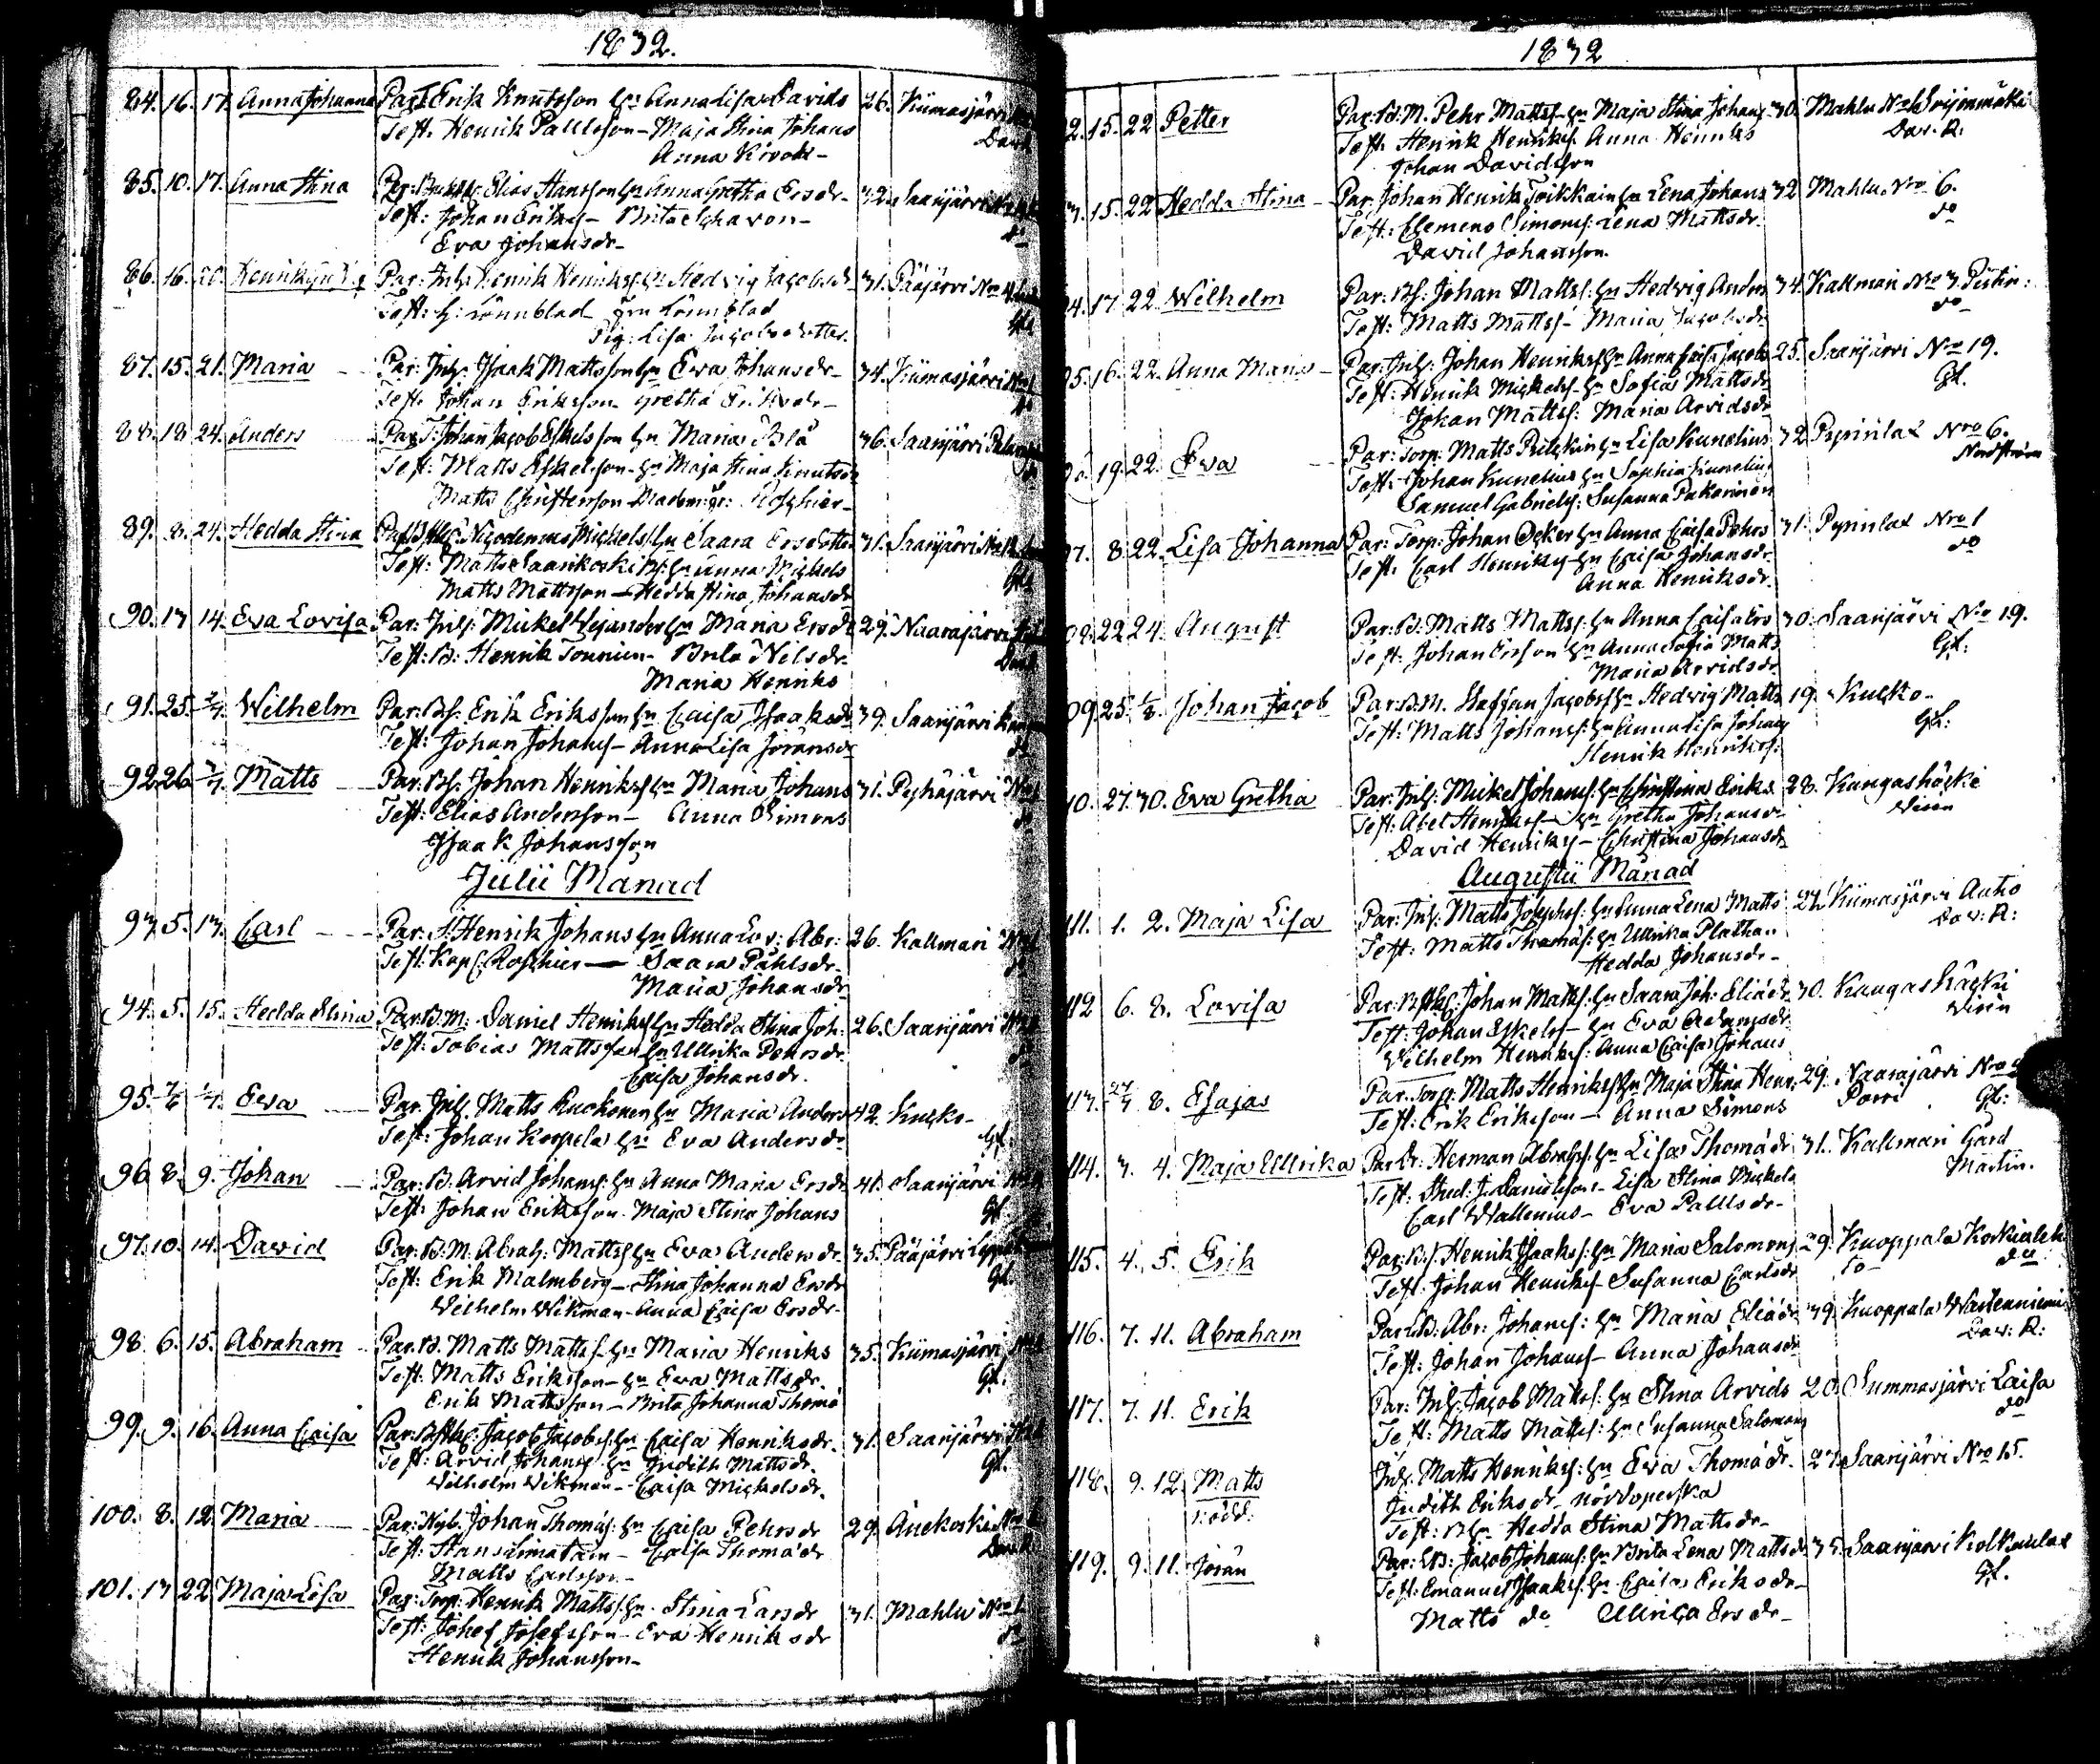 1832.
84. 16. 17. Anna Johanna Par: T. Erik Knutsson hu Anna Lisa Davids 26. Kiimasjärvi
Test. Henrik Paulsson - Maja Stina Johans
Anna
85. 10. 17. Anna Stina Par: Elias Hansson hu Anna Gretha Ersdr 32. Saarijärvi
Test: Johan Eriks - Brita
Eva Johansdr -
86. 16. 20. Par: Inh. Henrik Henrikss hu Hedvig Jacobsdr 31. Pääjärvi No
Test: H: Lönnblad Fru Lönnblad
Pig: Lisa Jacobsdotter
87. 15. 21. Maria Par: Inh. Isaak Mattsson hu Eva Johansdr 34. Kiimasjärvi
Test. Johan Eriksson Gretha Eriksdr -
88. 18 24. Anders Par: T. Johan Jacob Eskelsson hu Maria Blå 36. Saarijärvi
Test: Matts Eskelsson - hu Maja Stina Knutsdr
Matts Christersson Madem: Roschier -
89. 8. 24. Hedda Stina Par: Nicodemus Mickelss hu Saara Ersdotter 31. Saarijärvi
Test: Matts Saarikoski hu Anna Mickels
Matts Mattsson - Hedda Stina Johansdr
90. 13 14. Eva Lovisa Par: Inh: Mickel Vejander hu Maria Ersdr 29. Naarajärvi
Test: B: Henrik Tourunen - Brita Nelsdr.
Maria Henriks
91. 25. 2/7. Wilhelm Par: Bs. Erik Eriksson hu Caisa Isaaksdr 39. Saarijärvi
Test: Johan Johanss - Anna Lisa Joransdr
92. 26. 3/7. Matts Par: Bs. Johan Henrikss hu Maria Johans 31. Pyhäjärvi
Test: Elias Andersson - Anna Simons
Isaak Johansson
Julii Månad
93. 5. 13. Carl Par. S. Henrik Johans hu Anna Lov: Abr: 26. Kallmari
Test. Kapl. Roschier - Saara Påhlsdr
Maria Johansdr
94. 5. 15. Hedda Stina Par: B.M: Daniel Henrikss hu Hedda Stina Joh: 26. Saarijärvi
Test: Tobias Mattsson hu Ullrika Pehrsdr
Caisa Johansdr.
95. 7/6 1/7. Eva Par. Inh. Matts Ruokonen hu Maria Anders 42. Kucko -
Test: Johan Korpela hu Eva Andersdr Gl.
96. 8. 9. Johan Par: B. Arvid Johanss: hu Anna Maria Ersdr 41. Saarijärvi
Test: Johan Eriksson Maja Stina Johans Gl.
97. 10. 14. David Par: B.M. Abrah. Mattss hu Eva Andersdr 35. Pääjärvi
Test: Erik Malmberg - Stina Johanna Ersdr Gl.
Wilhelm Wikman - Anna Caisa Ersdr -
98. 6. 15. Abraham Par: B. Matts Mattss. hu Maria Henriks 35. Kiimasjärvi
Test. Matts Eriksson - hu Eva Mattsdr. Gl.
Erik Mattsson - Brita Johanna Thoma
99. 9. 16. Anna Caisa Par: Jacob Jacobss: hu Caisa Henriksdr. 31. Saarijärvi
Test: Arvid Johanss hu Judith Mattsdr. Gl.
Wilhelm Wikman - Caisa Mickelsdr.
100. 8. 12. Maria Par: Nyb. Johan Thomas: hu Caisa Pehrsdr 29. Änekoski
Test: Hans Limatain - Caisa Thomadr
Matts Carlsson -
101. 13 22 Maja Lisa Par: Torp: Henrik Mattss. hu Stina Larsdr 31. Mahlu No
Test: Josef Josefsson - Eva Henriksdr
Henrik Johansson -
1832
2. 15. 22 Petter Par: B.M. Pehr Mattss hu Maja Stina Johans 30. Mahlu No
Test: Henrik Henrikss. Anna Henriks Dav. R:
Johan Davidsson
3. 15. 22 Hedda Stina Par: Johan Henrik Toikkain hu Lena Johans 32 Mahlu No 6.
Test: Clemens Simons: Lena Mattsdr. do
David Johansson.
4. 17. 22. Wilhelm Par: Bs. Johan Mattss: hu Hedvig Anders 34. Kallmari No 3.
Test: Matts Mattss - Maria Jacobsdr do
5. 16. 22. Anna Maria Par: Inh. Johan Henrikss hu Anna Caisa Jacobs 25. Saarijärvi No 19.
Test: Henrik Mickelss - hu Sofia Mattsdr Gl.
Johan Mattss: Maria Arvidsdr
19. 22. Eva Par: Torp: Matts hu Lisa Kunelius 32 Pyrinlax No 6.
Test: Johan Kunelius hu Sophia Kunelius Nordström
Samuel Gabriels: Susanna Pakarinen
07. 8. 22. Lisa Johanna Par: Torp: Johan hu Anna Caisa Pehrs 31. Pyrinlax No 1
Test. Carl Henriks - hu Caisa Johansdr do
Anna Henriksdr.
08. 22 24. August Par: B. Matts Mattss. hu Anna Caisa Ers 30. Saarijärvi No 19.
Test. Johan Ersson hu Anna Sofia Matts Gl:
Maria Arvidsdr
09. 25. 1/8. Johan Jacob Par: B.M. Staffan Jacobss hu Hedvig Matts 19. Kucko -
Test: Matts Johanss: hu Anna Lisa Johans Gl:
Henrik Henrikss:
10. 27. 30. Eva Gretha Par: Inh: Mickel Johanss: hu Christina Eriks 28. Kangashäcki
Test. Abel Henrikss - hu Gretha Johansdr Virén
David Henriks - Christina Johansdr
Augustii Månad
111. 1. 2. Maja Lisa Par: Inh. Matts Josephss. hu Anna Lena Matts 27. Kiimasjärvi Autio
Test: Matts Thomass: hu Ullrika Plathan Dav: R:
Hedda Johansdr -
112 6. 8. Lovisa Par: Johan Mattss. hu Saara Joh: Eliædr 30. Kangashäcki
Test: Johan Eskelss - hu Eva Adamsdr Virén
Wilhelm Henrikss: Anna Caisa Johans
113. 27/7 8. Esajas Par: Torp. Matts Henrikss hu Maja Stina Henr. 29. Naarajärvi No
Test: Erik Eriksson - Anna Simons Gl:
114. 3. 4. Maja Ullrika Par: Dr: Herman Abrahs. hu Lisa Thomadr 31. Kallmari Gård
Test: Stud: J. Danielsson - Lisa Stina Mickels Martin.
Carl Wallenius - Eva Paulsdr -
115. 4. 5. Erik Par: Bs. Henrik Isaakss: hu Maria Salomons 29. Kuoppala
Test. Johan Henrikss - Susanna Carlsdr do
116. 7. 11. Abraham Par: B: Abr: Johanss: hu Maria Eliædr 39. Kuoppala
Test: Johan Johanss - Anna Johansdr Dav: R:
117. 7. 11. Erik Par: Inh: Jacob Matts: hu Stina Arvids 20. Summasjärvi Laisa
Test: Matts Mattss: hu Susanna Salomons do
118. 9. 12. Matts Inh. Matts Henrikss: hu Eva Thomadr. 27. Saarijärvi No 15.
nödd: Judith Eriksdr nöddöperska
Test: hu Hedda Stina Mattsdr -
119. 9. 11. Jöran Par: B: Jacob Johanss: hu Brita Lena Mattsdr 35. Saarijärvi Kolkanlax
Test: Emanuel Isaakss. hu Caisa Eriksdr - Gl.
Matts do Ullrica Ersdr -